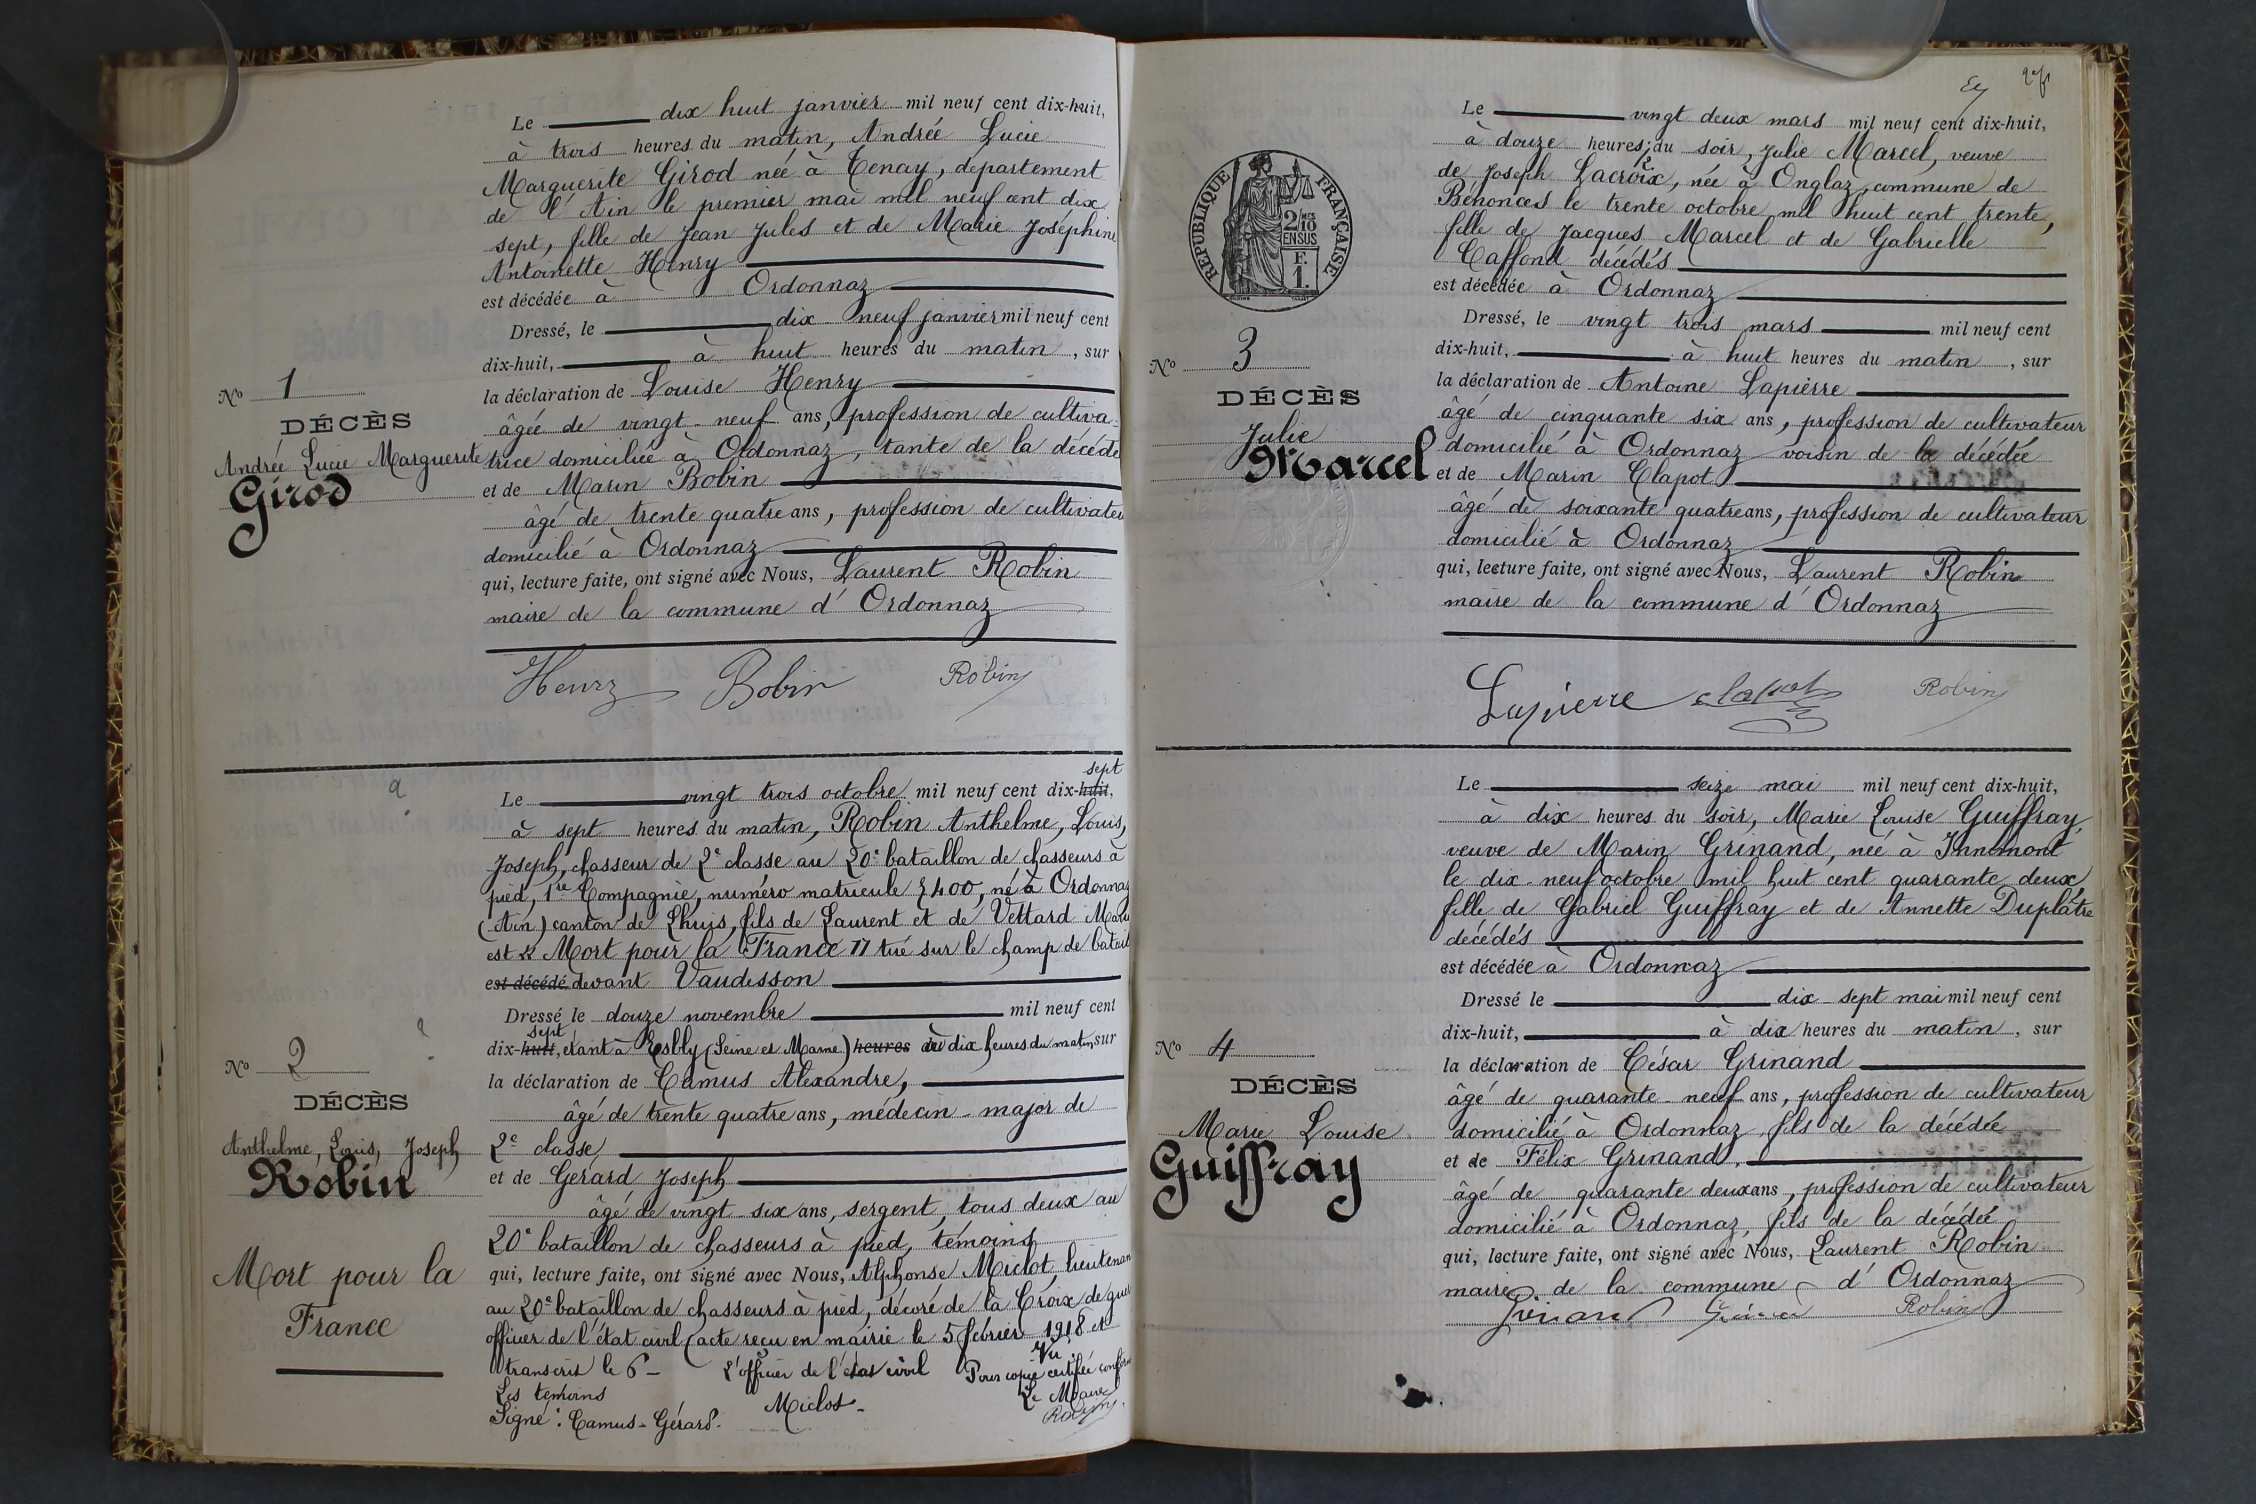 Le dix huit janvier mil neuf cent dix-huit,
à trois heures du matin, Andrée Lucie
Marguerite Girod née à Tenay, departement
de l'Ain le premier mai mil neuf cent dix
sept, fille de Jean Jules et de Marie Joséphine
Antoinette Henry
est décédée à Ordonnaz
Dressé, le dix neuf janvier mil neuf cent
dix-huit, à huit heures du matin, sur
la déclaration de Louise Henry
âgée de vingt-neuf ans, profession de cultiva-
trice domiciliée à Ordonnaz, tante de la décédé
et de Marin Bobin
âgé de trente quatre ans, profession de cultivateu
domicilié à Ordonnaz
qui, lecture faite, ont signé avec Nous, Laurent Robin
maire de la commune d'Ordonnaz
Henry Bobin Robin
No 1
DÉCÈS
Andrée Lucie Marguerite
Girod
sept
Le vingt trois octobre mil neuf cent dix-huit,
à sept heures du matin, Robin Anthelme, Louis,
Joseph, chasseur de 2e classe au 20e bataillon de chasseurs à
pied, 1re Compagnie, numéro matricule 5400, né à Ordonnaz
(Ain) canton de Lhuis, fils de Laurent et de Vettard Marie
est " Mort pour la France " tué sur le champ de batail
est décédé devant Vaudesson
Dressé le douze novembre mil neuf cent
sept
dix-huit, étant à Esbly (Seine et Marne) heures du dix heures du matin, sur
la déclaration de Camus Alexandre,
âgé de trente quatre ans, médecin-major de
2e classe
et de Gérard Joseph
âgé de vingt-six ans, sergent, tous deux au
20e bataillon de chasseurs à pied, témoins
qui, lecture faite, ont signé avec Nous, Alphonse Miclot, lieutenan
au 20e bataillon de chasseurs à pied, décoré de la Croix de guer
officier de l'état civil (acte reçu en mairie le 5 février 1918 et
transcrit le 6- L'officier de l'état civil Vu: Pour copie certifiée conform
Les temoins Miclot- Le Maire
Signé: Camus-Gérard. Robin
No 2
DÉCÈS
Anthelme, Louis, Joseph
Robin
Mort pour la
France
RÉPUBLIQUE FRANÇAISE
2/10 MES
EN SUS
F.
1.
Le vingt deux mars mil neuf cent dix-huit,
à douze heures du soir, Julie Marcel, veuve
de Joseph Lacroix, née à Onglaz, commune de
Bénonces le trente octobre mil huit cent trente,
fille de Jacques Marcel et de Gabrielle
Caffond décédés
est décédée à Ordonnaz
Dressé, le vingt trois mars mil neuf cent
dix-huit, à huit heures du matin, sur
la déclaration de Antoine Lapierre
âgé de cinquante six ans, profession de cultivateur
domicilié à Ordonnaz voisin de la décédée
et de Marin Clapot
âgé de soixante quatre ans, profession de cultivateur
domicilié à Ordonnaz
qui, lecture faite, ont signé avec Nous, Laurent Robin
maire de la commune d'Ordonnaz
Lapierre Clapot Robin
No 3
DÉCÈS
Julie
Marcel
Le seize mai mil neuf cent dix-huit,
à dix heures du soir, Marie Louise Guiffray,
veuve de Marin Grinand, née à Innimont
le dix-neuf octobre mil huit cent quarante deux,
fille de Gabriel Guiffray et de Annette Duplâtre
décédés
est décédée à Ordonnaz
Dressé le dix-sept mai mil neuf cent
dix-huit, à dix heures du matin, sur
la déclaration de César Grinand
âgé de quarante-neuf ans, profession de cultivateur
domicilié à Ordonnaz, fils de la décédée
et de Félix Grinand,
âgé de quarante deux ans, profession de cultivateur
domicilié à Ordonnaz, fils de la décédée
qui, lecture faite, ont signé avec Nous, Laurent Robin
maire de la commune d'Ordonnaz
Robin
No 4
DÉCÈS
Marie Louise
Guiffray